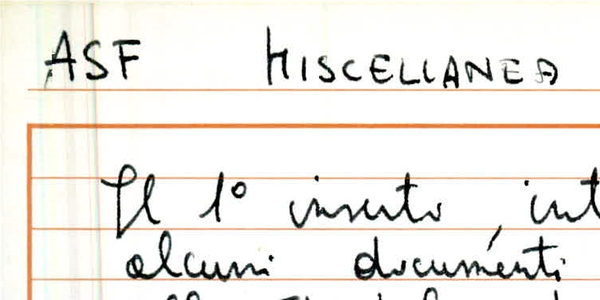 ASF MISCELLANEA
Il 1° inserto, int
alcuni documenti